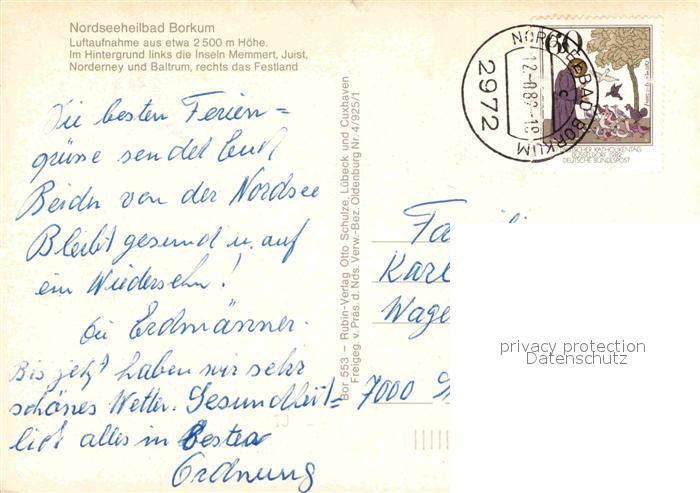 Nordseeheilbad Borkum
Luftaufnahme aus etwa 2500 m Höhe.
Im Hintergrund links die Inseln Memmert, Juist,
Norderney und Baltrum, rechts das Festland
Die besten Ferien=
grüsse sendet Euch
Beiden von der Nordsee
Bleibt gesund u. auf
ein Wiedersehn!
Die Erdmänner.
Bis jetzt haben wir sehr
schönes Wetter. Gesundheit=
lich alles in bester
Ordnung
Bor 553 – Rubin-Verlag Otto Schulze, Lübeck und Cuxhaven
Freigeg. v. Präs. d. Nds. Verw.-Bez. Oldenburg Nr. 4/925/1
NORDSEEBAD BORKUM
2972
60
DEUTSCHER KATHOLIKENTAG
DÜSSELDORF 1982
DEUTSCHE BUNDESPOST
Fa
Karl
Wage
7000
privacy protection
Datenschutz